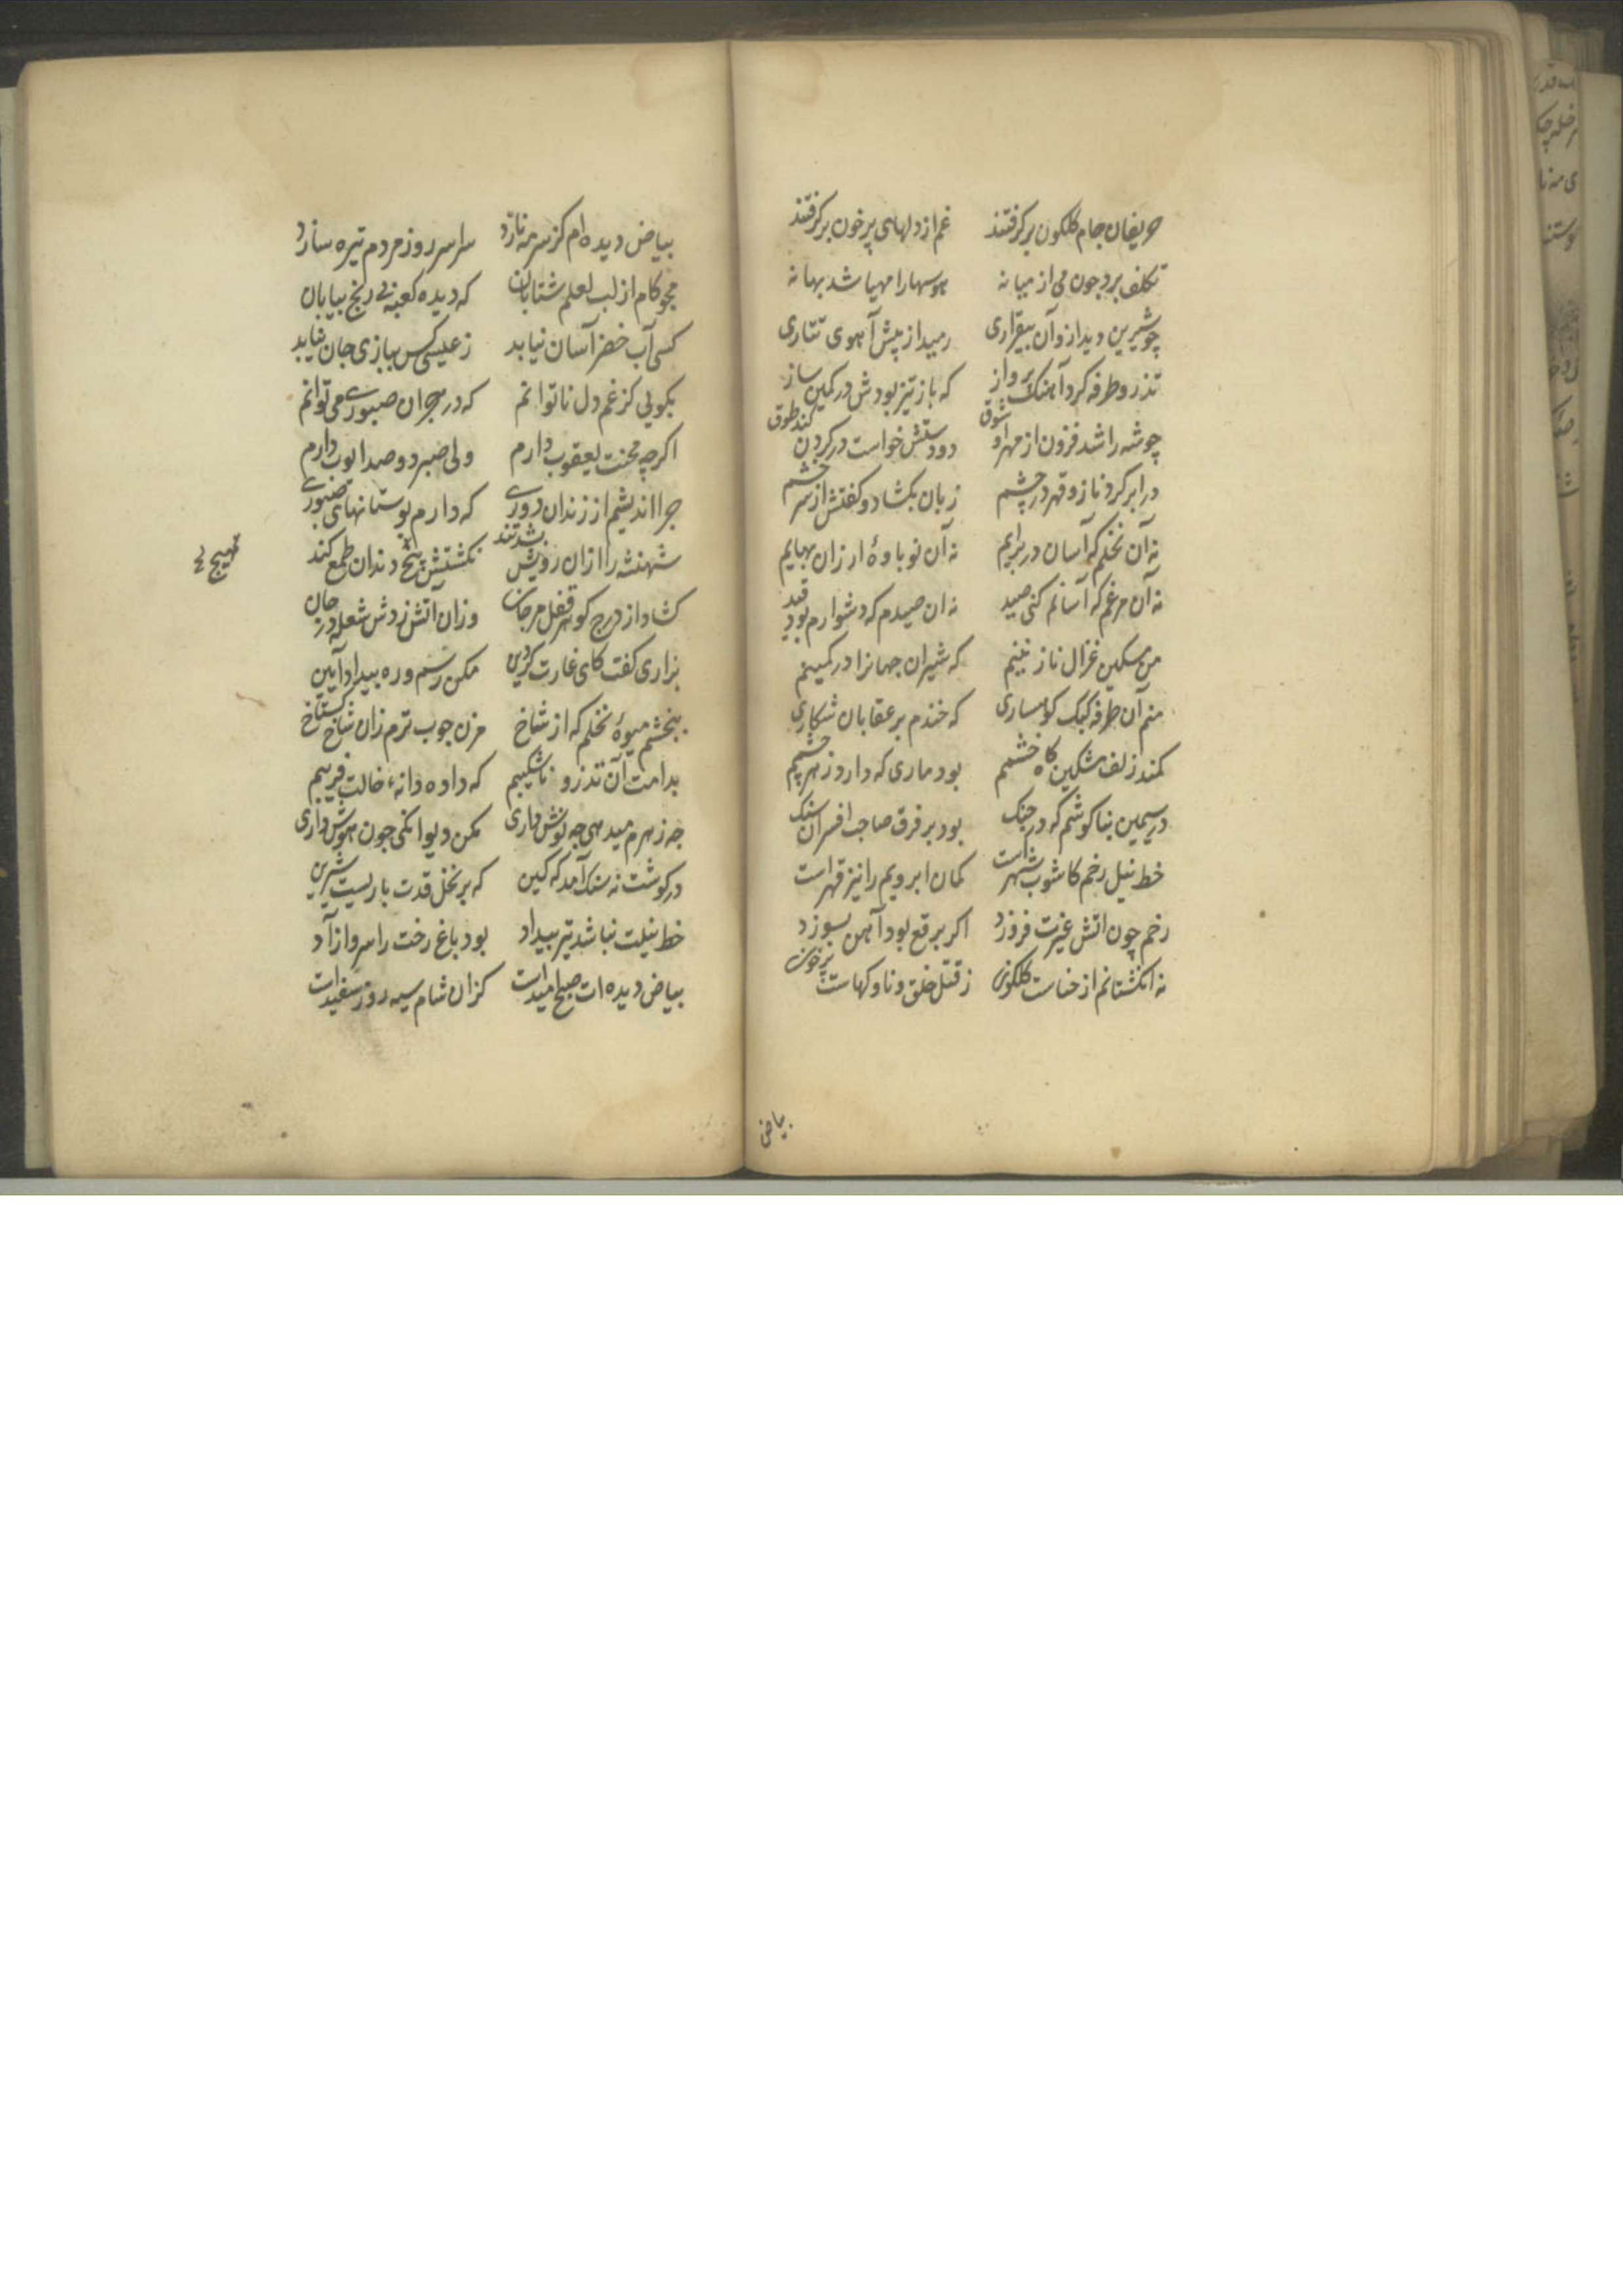 حریفان جام کلکون بر کرفتند غم از دلهای پر خون بر کرفتند
تکلف برد چون می از میانه هوسها را مهیا شد بهانه
چو شیرین دید ازو آن بیقراری رمید از پیش آهوی تتاری
تذرو طرفه کرد آهنک پرواز که باز تیز بودش در کمین ساز
چو شه را شد فزون از مهر او شوق دو دستش خواست در کردن کند طوق
در ابر کرد ناز و قهر در چشم زبان بکشاد و کفتش از سر خشم
نه آن نخلم که آسان در بر ایم نه آن نوباوهٔ ارزان بهایم
نه آن مرغم که آسانم کنی صید نه ان صیدم که دشوارم بود قید
من مسکین غزال نازنینم که شیران جهانرا در کمینم
منم آن طرفه کبک کوهساری که خندم بر عقابان شکاری
کمند زلف مشکین کاه خشمم بود ماری که دارو زهر چشمم
در سیمین بناکوشم که در جنک بود بر فرق صاحب افسران سنک
خط نیل رخم کاشوب شهر است کمان ابرویم را نیز قهر است
رخم چون اتش غیرت فروزد اکر برقع بود آهن بسوزد
نه انکشتانم از حناست کلکون ز قتل خلق و ناوکهاست پرخون
بیاض
بیاض دیده ام کز سرمه نازد سراسر روز مردم تیره سازد
مجو کام از لب لعلم شتابان که دیده کعبه بی رنج بیابان
کسی آب خضر آسان نیابد ز عیسی کس ببازی جان نیابد
بکویی کز غم دل ناتوانم که در هجران صبوری می توانم
اکر چه محنت یعقوب دارم ولی صبر دو صد ایوب دارم
چرا اندیشم از زندان دوری که دارم بوستانهای صبوری
شهنشه را ازان رویش شد تند نکشتش هیچ دندان طمع کند
هیچ
کشاد از درج کوهر قفل مرجان وزان آتش زدش شعله در جان
بزاری کفت کای غارت کر دین مکن رسم و ره بیداد آیین
ببخشم میوهٔ نخلم که از شاخ مزن چوب ترم زان شاخ کستاخ
بدامت آن تذرو ناشکیبم که داده دانهٔ خالت فریبم
چه زهرم میدهی چه نوش داری مکن دیوانکی چون هوش داری
در کوشت نه سنک آمد که کین که بر نخل قدت باریست شیرین
خط نیلت نباشد تیر بیداد بود باغ رخت را سرو ازاد
بیاض دیده ات صبح امیدست کزان شام سیه روز سفیدست